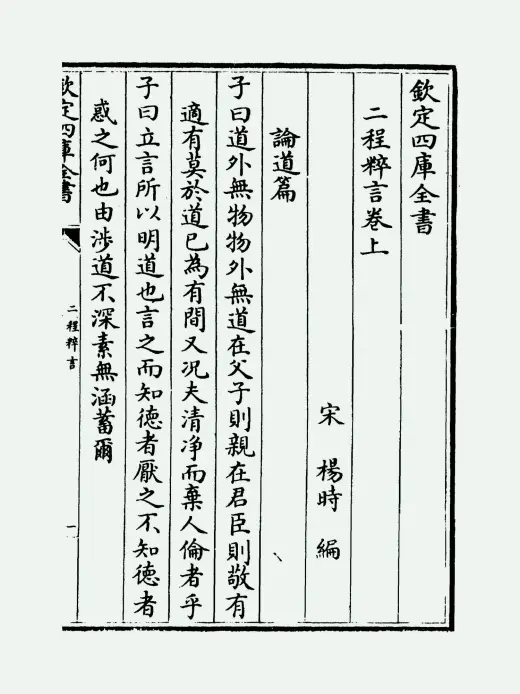 欽定四庫全書
二程粹言卷上
宋 楊時 編
論道篇
子曰道外無物物外無道在父子則親在君臣則敬有
適有莫於道已為有間又况夫清净而棄人倫者乎
子曰立言所以明道也言之而知德者厭之不知德者
惑之何也由涉道不深素無涵蓄爾
欽定四庫全書
二程粹言
一